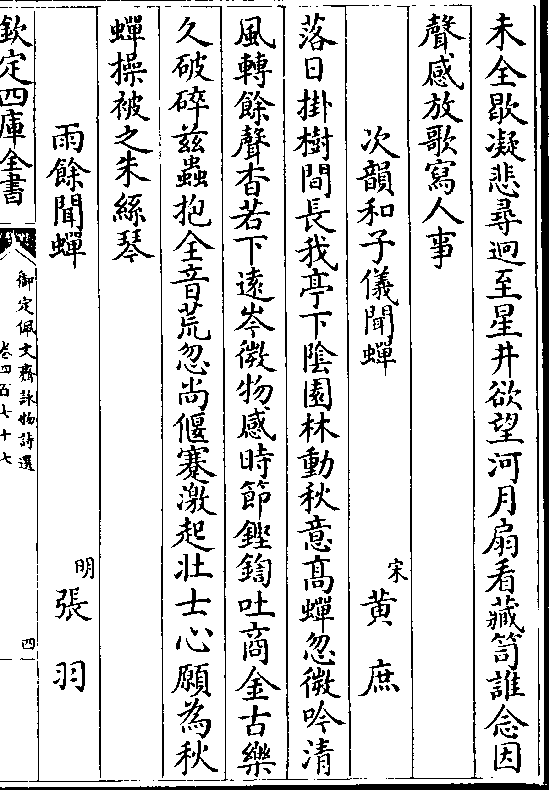 未全歇凝悲尋迥至星井欲望河月扇看藏笥誰念因
聲感放歌寫人事
次韻和子儀聞蟬 宋 黄庶
落日掛樹間長我亭下陰園林動秋意高蟬忽微吟清
風轉餘聲杳若下遠岑微物感時節鏗鍧吐商金古樂
久破碎兹蟲抱全音荒忽尚偃蹇激起壯士心願為秋
蟬操被之朱絲琴
雨餘聞蟬 明 張羽
欽定四庫全書
御定佩文齋詠物詩選
卷四百七十七
四